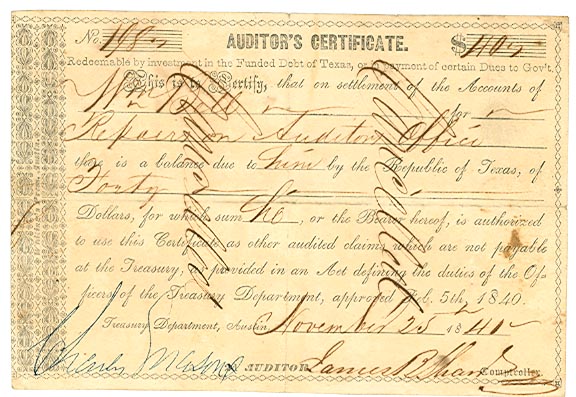 No. AUDITOR'S CERTIFICATE. $40
Redeemable by investment in the Funded Debt of Texas, or in payment of certain Dues to Gov't.
This is to Certify, that on settlement of the Accounts of
Wm Bell for
Repairs on Auditors Office
there is a balance due to him by the Republic of Texas, of
Forty
Dollars, for which sum he, or the Bearer hereof, is authorized
to use this Certificate as other audited claims which are not payable
at the Treasury, as provided in an Act defining the duties of the Of-
ficers of the Treasury Department, approved Feb. 5th, 1840.
Treasury Department, Austin November 25th 1841
Charles Mason AUDITOR. James B Shaw Comptroller.